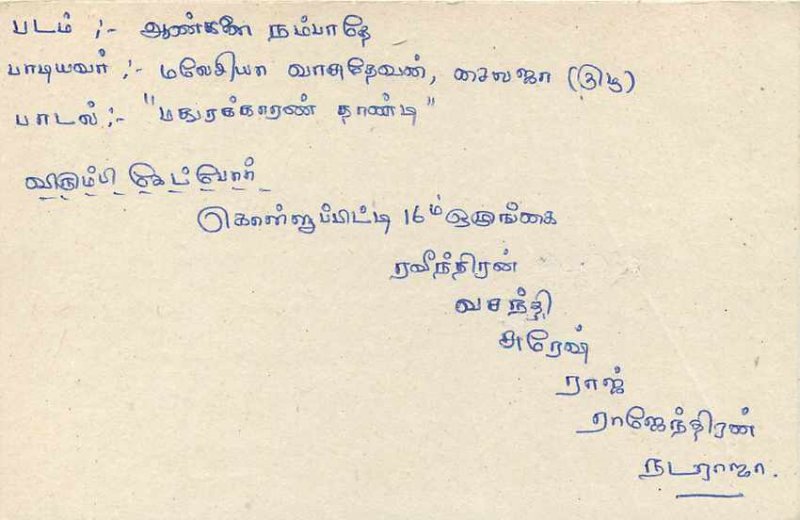 படம் ;- ஆண்களை நம்பாதே
பாடியவர் ;- மலேசியா வாசுதேவன், சைலஜா (குடி)
பாடல் ;- "மதுரக்காரண் தாண்டி"
விரும்பி கேட்போர்
கொள்ளுப்பிட்டி 16ம் ஒழுங்கை
ரவீந்திரன்
வசந்தி
சுரேஷ்
ராஜ்
ராஜேந்திரன்
நடராஜா.